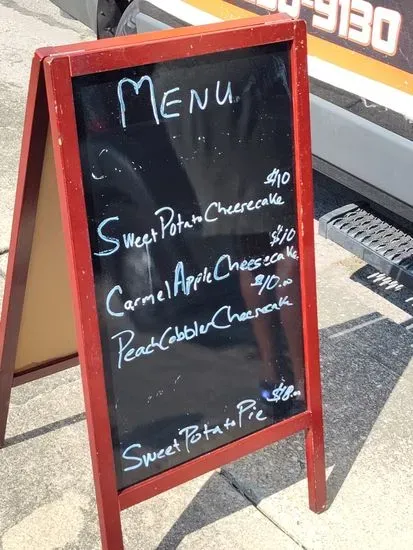 -9130
MENU
$10
Sweet Potato Cheesecake
$10
Carmel Apple Cheesecake
$10.00
Peach Cobbler Cheesecake
$18.00
Sweet Potato Pie